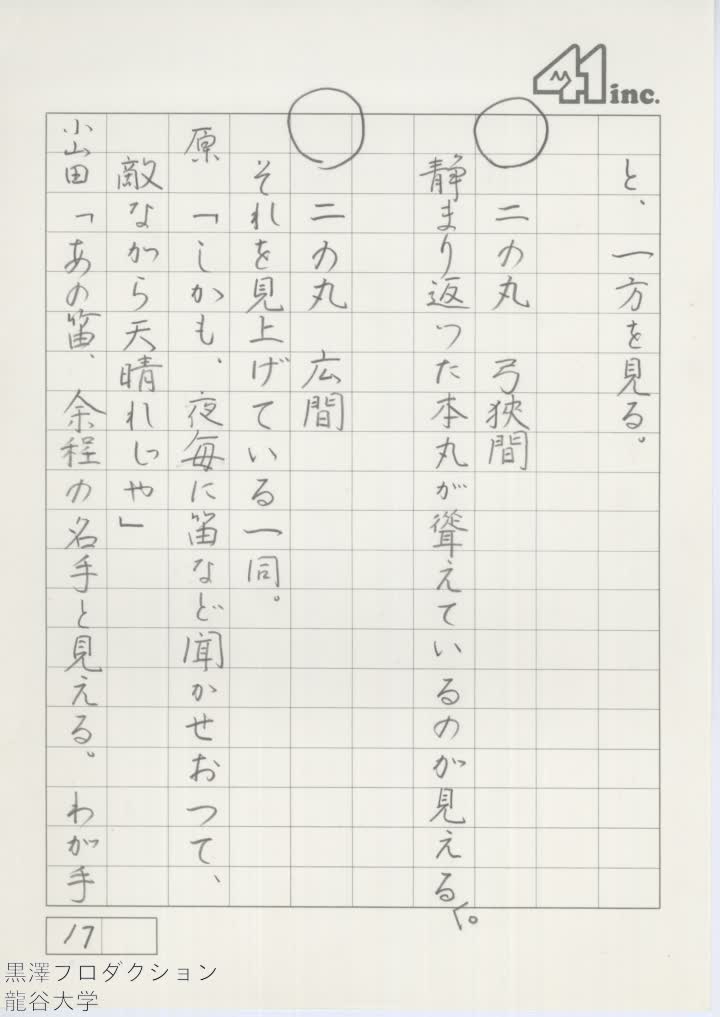 41 inc.
と、一方を見る。
○ 二の丸 弓狭間
静まり返つた本丸が聳えているのが見える。
○ 二の丸 広間
それを見上げている一同。
原「しかも、夜毎に笛など聞かせおつて、
敵ながら天晴れじや」
小山田「あの笛、余程の名手と見える。わが手
17
黒澤プロダクション
龍谷大学